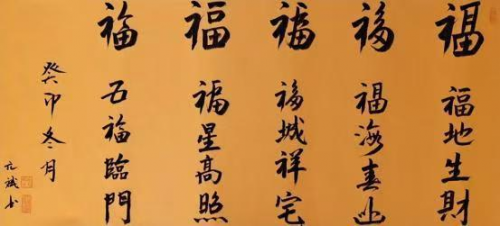 福
福地生財
福
福海春
福
福城祥宅
福
福星高照
福
五福臨門
癸卯冬月
斌书